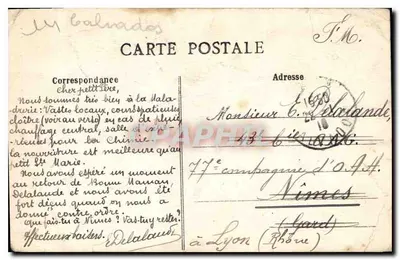 Calvados
F.M.
CARTE POSTALE
Correspondance
Adresse
Cher petit frère,
Nous sommes très bien à la Mala-
drerie: Vastes locaux, cours spatieuses,
cloître (voir au verso) en cas de pluie
chauffage central, salle d'
pour la Chimie.
la nourriture est meilleure qu'au
petit Ste Marie.
Nous avons espéré un moment
au retour de Bonne Maman,
Delalande et nous avons été
fort déçus quand on nous a
donné contre ordre.
que fais-tu à Nîmes? Vas-tu y rester?
Affectueux baisers. Delalande
Monsieur E. Delalande,
77e compagnie d'O.A.
Nîmes
(Gard)
à Lyon (Rhône)